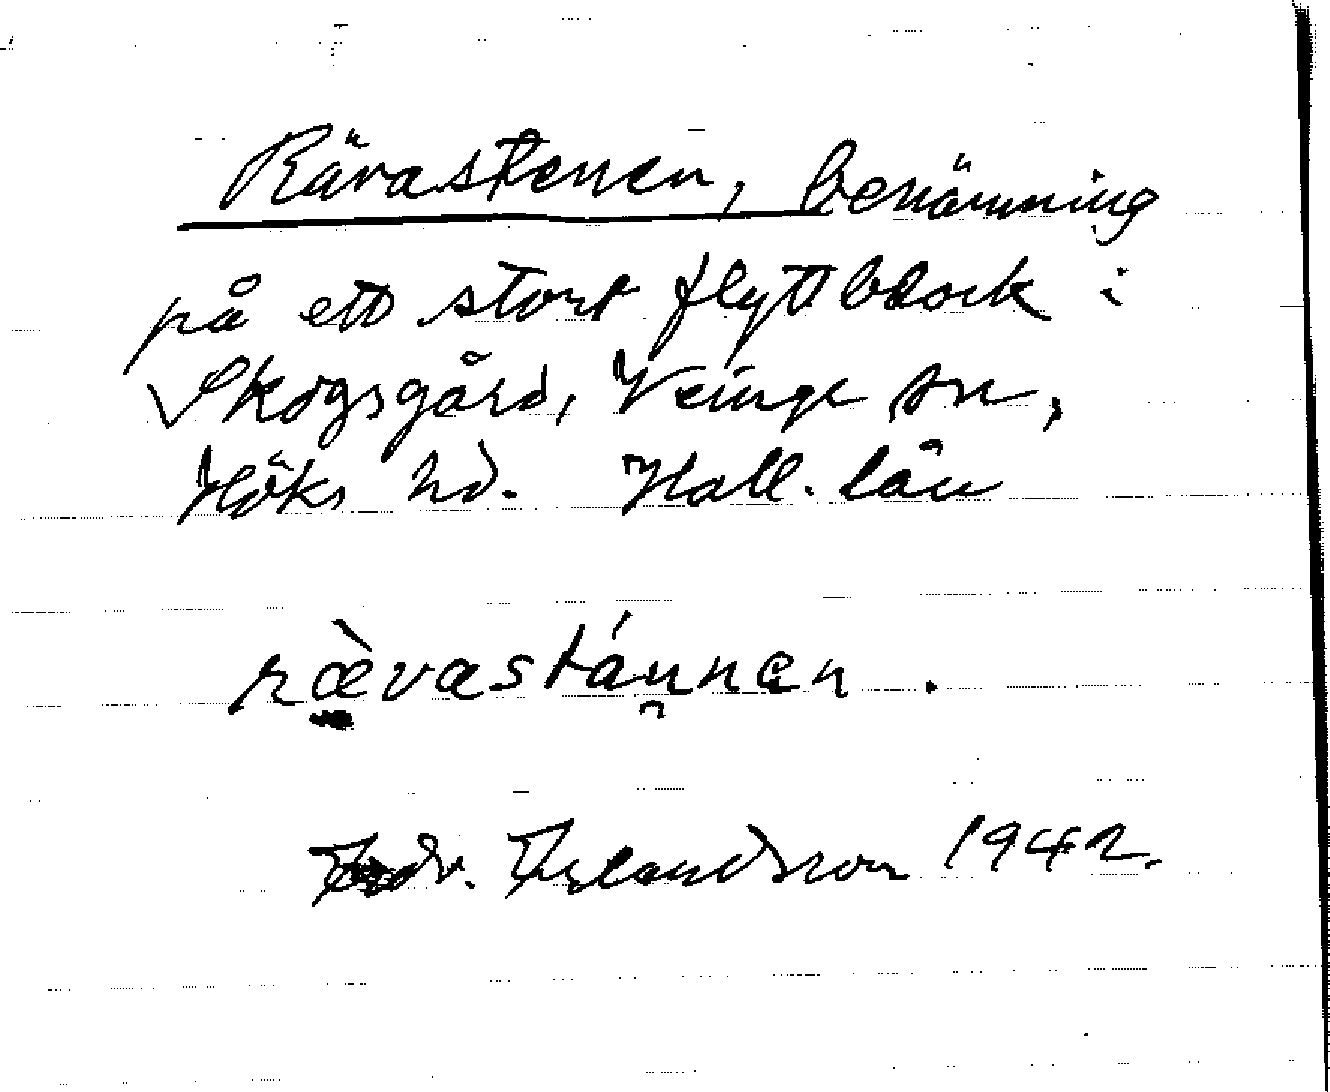 Rävastenen, benämning
på ett stort flyttblock i
Skogsgård, Veinge sn,
Höks hd. Hall. län
rævastánnen.
Erlandsson 1942.